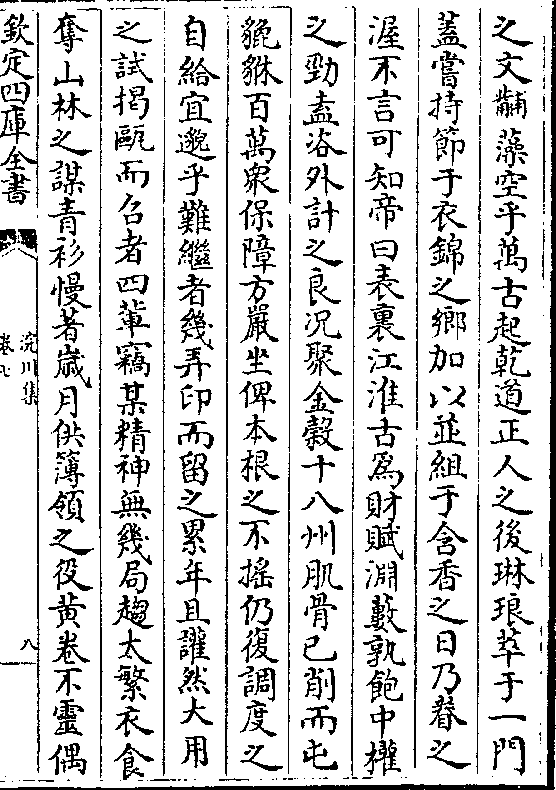 之文黼藻空乎萬古起乾道正人之後琳琅萃于一門
蓋嘗持節于衣錦之鄉加以並組于含香之日乃眷之
渥不言可知帝曰表裏江淮古爲財賦淵藪孰飽中權
之勁盍咨外計之良況聚金穀十八州肌骨已削而屯
貔貅百萬衆保障方嚴坐俾本根之不搖仍復調度之
自給宜邈乎難繼者幾弄印而留之累年且讙然大用
之試揭甌而召者四輩竊某精神無幾局趨太繁衣食
奪山林之謀青衫慢著歲月供簿領之役黄卷不靈偶
欽定四庫全書
浣川集
卷七
八